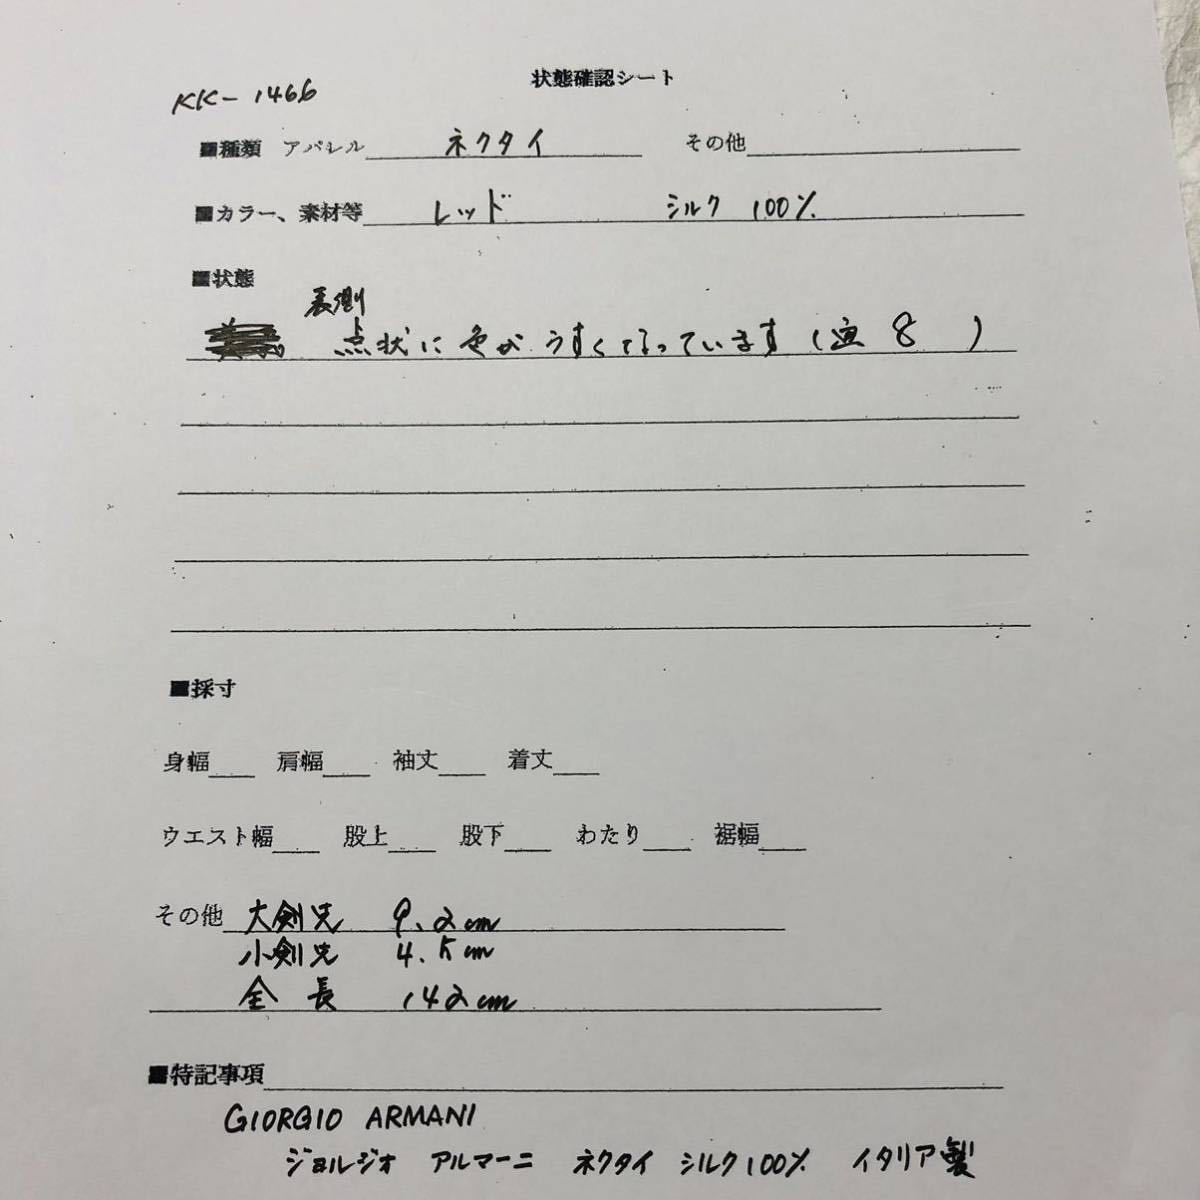 状態確認シート
KK-1466
■種類 アパレル ネクタイ その他
■カラー、素材等 レッド シルク 100%
■状態
表側
点状に色がうすくなっています( 8 )
■採寸
身幅 肩幅 袖丈 着丈
ウエスト幅 股上 股下 わたり 裾幅
その他 大剣先 9.2cm
小剣先 4.5cm
全長 142cm
■特記事項
GIORGIO ARMANI
ジョルジオ アルマーニ ネクタイ シルク100% イタリア製